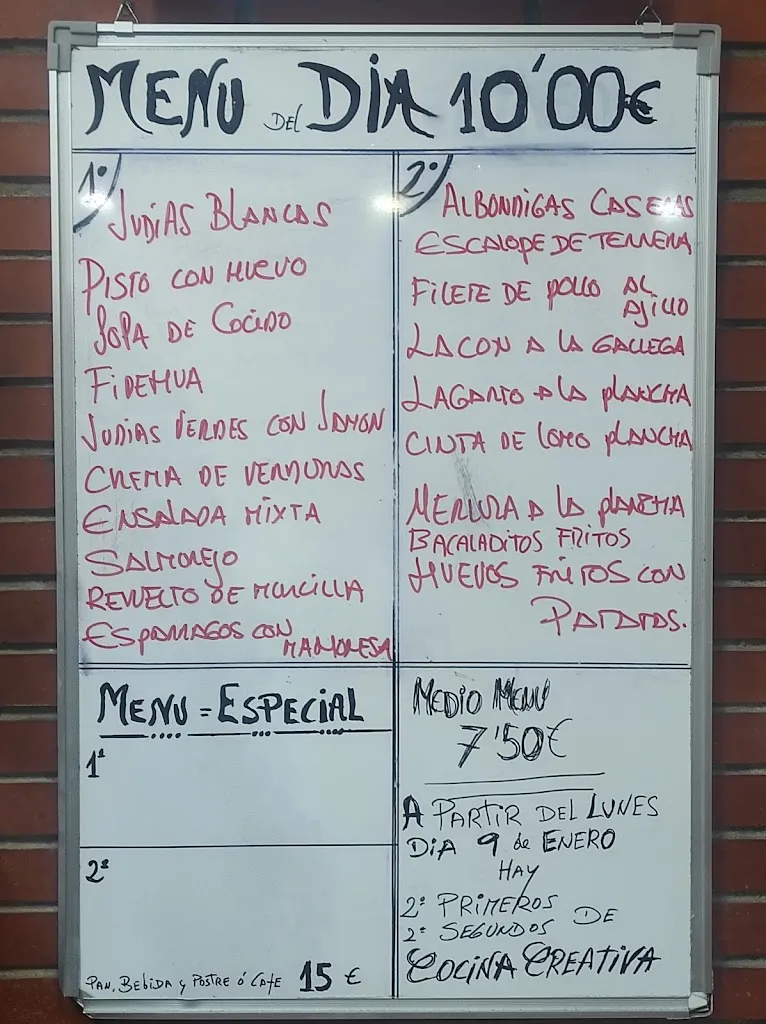 MENU DEL DIA 10'00€
1º
JUDIAS BLANCAS
PISTO CON HUEVO
SOPA DE COCIDO
FIDEHUA
JUDIAS VERDES CON JAMON
CREMA DE VERDURAS
ENSALADA MIXTA
SALMOREJO
REVUELTO DE MORCILLA
ESPARRAGOS CON
MAHONESA
2º
ALBONDIGAS CASERAS
ESCALOPE DE TERNERA
FILETE DE POLLO AL
AJILLO
LACON A LA GALLEGA
LAGARTO A LA PLANCHA
CINTA DE LOMO PLANCHA
MERLUZA A LA PLANCHA
BACALADITOS FRITOS
HUEVOS FRITOS CON
PATATAS.
MENU = ESPECIAL
1º
2º
PAN, BEBIDA Y POSTRE Ó CAFE 15 €
MEDIO MENU
7'50€
A PARTIR DEL LUNES
DIA 9 de ENERO
HAY
2º PRIMEROS
2º SEGUNDOS DE
COCINA CREATIVA